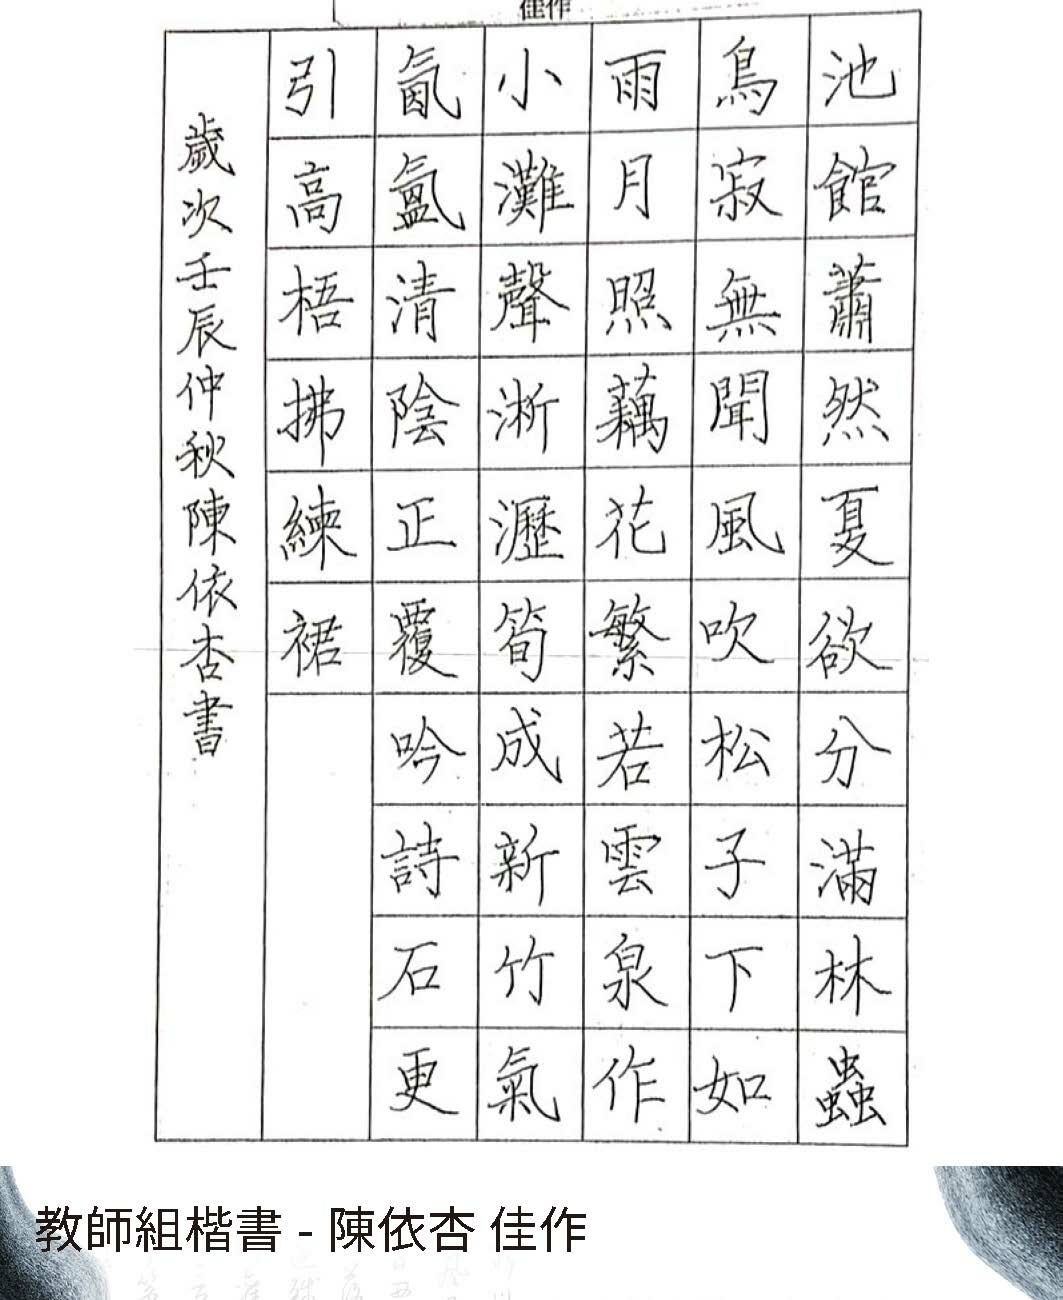 佳作
池館蕭然夏欲分滿林蟲
鳥寂無聞風吹松子下如
雨月照藕花繁若雲泉作
小灘聲淅瀝筍成新竹氣
氤氳清陰正覆吟詩石更
引高梧拂練裙
歲次壬辰仲秋陳依杏書
教師組楷書 - 陳依杏 佳作